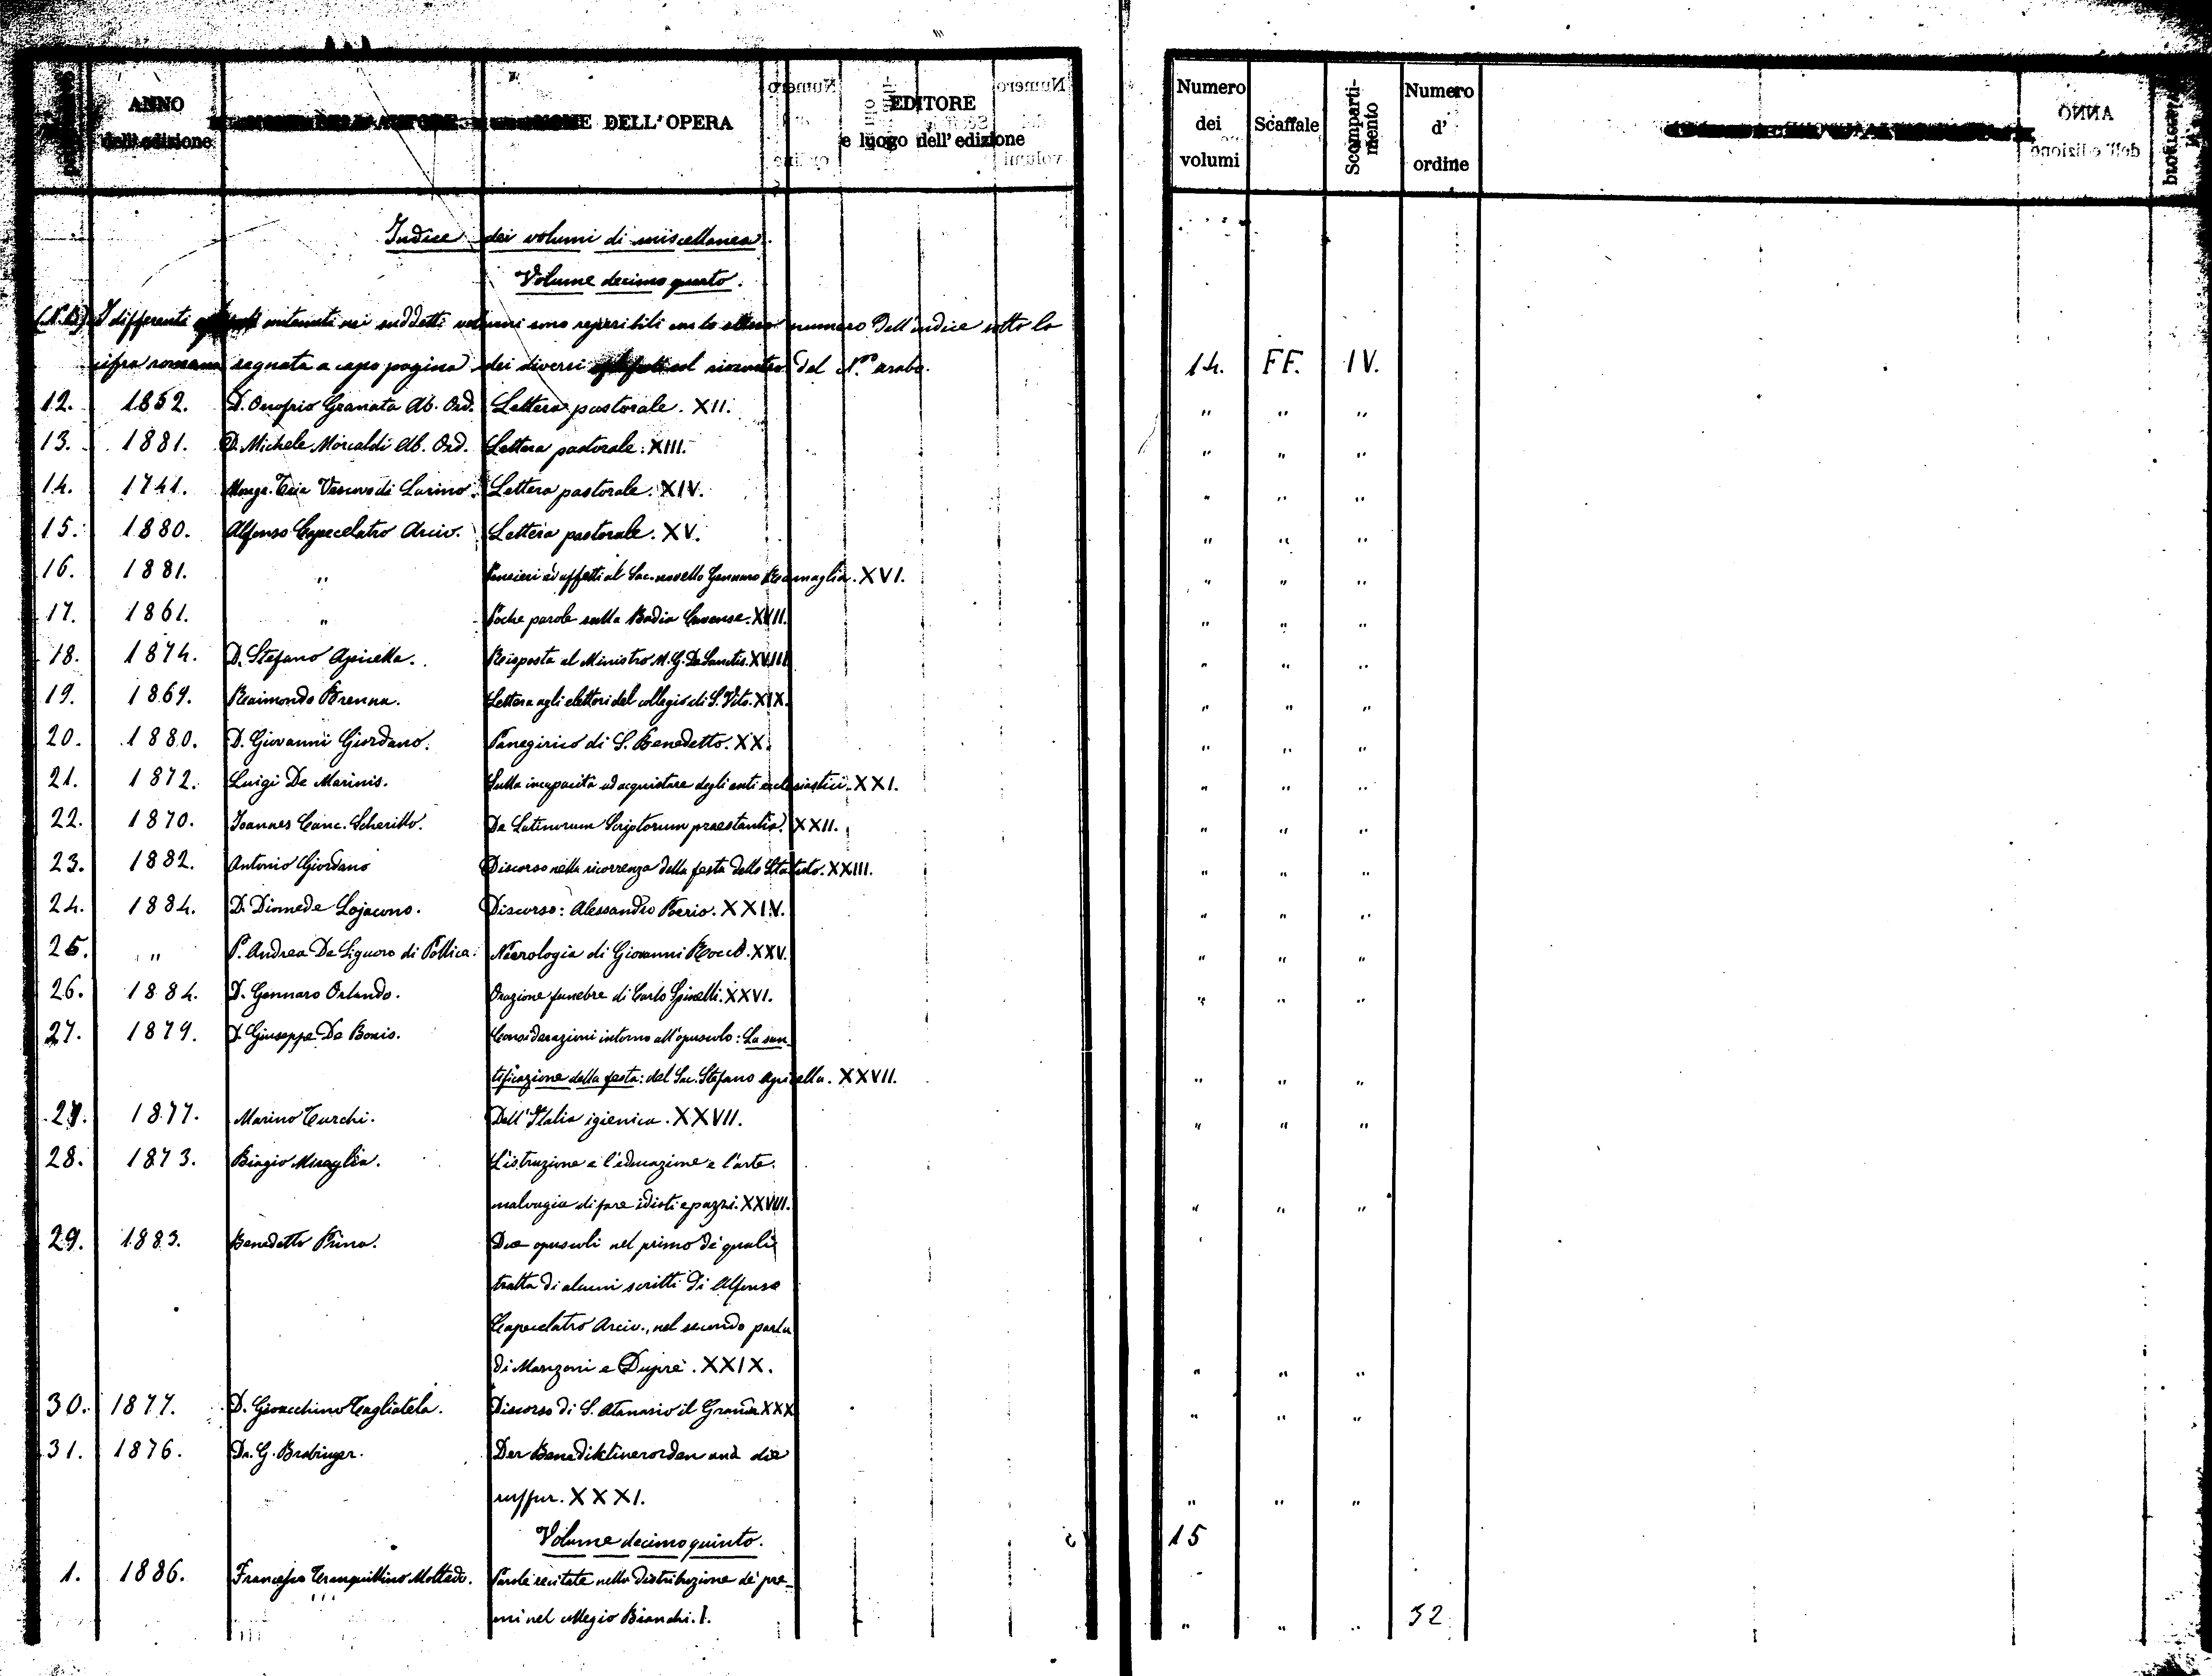 ANNO
dell'edizione
DELL'OPERA
EDITORE
e luogo dell'edizione
Numero dei volumi
Scaffale
Scomparti-mento
Numero d' ordine
Indice dei volumi di miscellanea.
Volume decimo quarto.
(N.B.) I differenti contenuti nei suddetti volumi sono reperibili con lo stesso numero dell'indice sotto la
cifra romana segnata a capo pagina dei diversi col riscontro del N.ro arabo. 14. FF. IV.
12. 1852. D. Onofrio Granata Ab. Ord. Lettera pastorale. XII. " " "
13. 1881. D. Michele Morcaldi Ab. Ord. Lettera pastorale. XIII. " " "
14. 1741. Monsr. Tria Vescovo di Larino. Lettera pastorale. XIV. " " "
15. 1880. Alfonso Capecelatro Arciv. Lettera pastorale. XV. " " "
16. 1881. " Pensieri ed affetti al Sac. novello Gennaro XVI. " " "
17. 1861. " Poche parole sulla Badia Cavense. XVII. " " "
18. 1874. D. Stefano Apicella. Risposta al Ministro M. G. De Sanctis. XVIII. " " "
19. 1869. Raimondo Brenna. Lettera agli elettori del collegio di S. Vito. XIX. " " "
20. 1880. D. Giovanni Giordano. Panegirico di S. Benedetto. XX. " " "
21. 1872. Luigi De Marinis. Sulla incapacità ad acquistare degli enti ecclesiastici. XXI. " " "
22. 1870. Joannes Canc. Scherillo. De Latinorum Scriptorum praestantia. XXII. " " "
23. 1882. Antonio Giordano Discorso nella ricorrenza della festa dello Statuto. XXIII. " " "
24. 1884. D. Diomede Lojacono. Discorso: Alessandro Poerio. XXIV. " " "
25. " P. Andrea De Liguoro di Pollica. Necrologia di Giovanni Rocco. XXV. " " "
26. 1884. D. Gennaro Orlando. Orazione funebre di Carlo Spinelli. XXVI. " " "
27. 1879. D. Giuseppe De Bonis. Considerazioni intorno all'opuscolo: La san-
tificazione della festa: del Sac. Stefano Apicella. XXVII. " " "
27. 1877. Marino Turchi. Dell'Italia igienica. XXVII. " " "
28. 1873. Biagio Miraglia. L'istruzione e l'educazione e l'arte
malvagia di fare idioti e pazzi. XXVIII. " " "
29. 1883. Benedetto Prina. Due opuscoli nel primo de' quali
tratta di alcuni scritti di Alfonso
Capecelatro Arciv., nel secondo parla
di Manzoni e Dupré. XXIX. " " "
30. 1877. D. Gioacchino Taglialatela. Discorso di S. Atanasio il Grande XXX " " "
31. 1876. Dr. G. Brabinger. Der Benediktinerorden und die
XXXI. " " "
Volume decimoquinto. 15
1. 1886. Francesco Tranquillino Moltedo. Parole recitate nella distribuzione de' pre-
mi nel collegio Bianchi. I. " " " 32